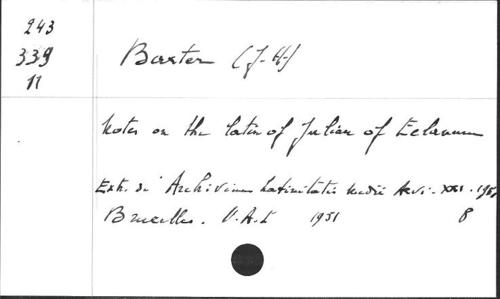 243
339
11
Baxter (J-H-)
Notes on the latin of Julian of Eclanum
Extr. di Archivum Latinitatis Medii Aevi - XXI - 1951
Bruxelles. U.A.I 1951 8